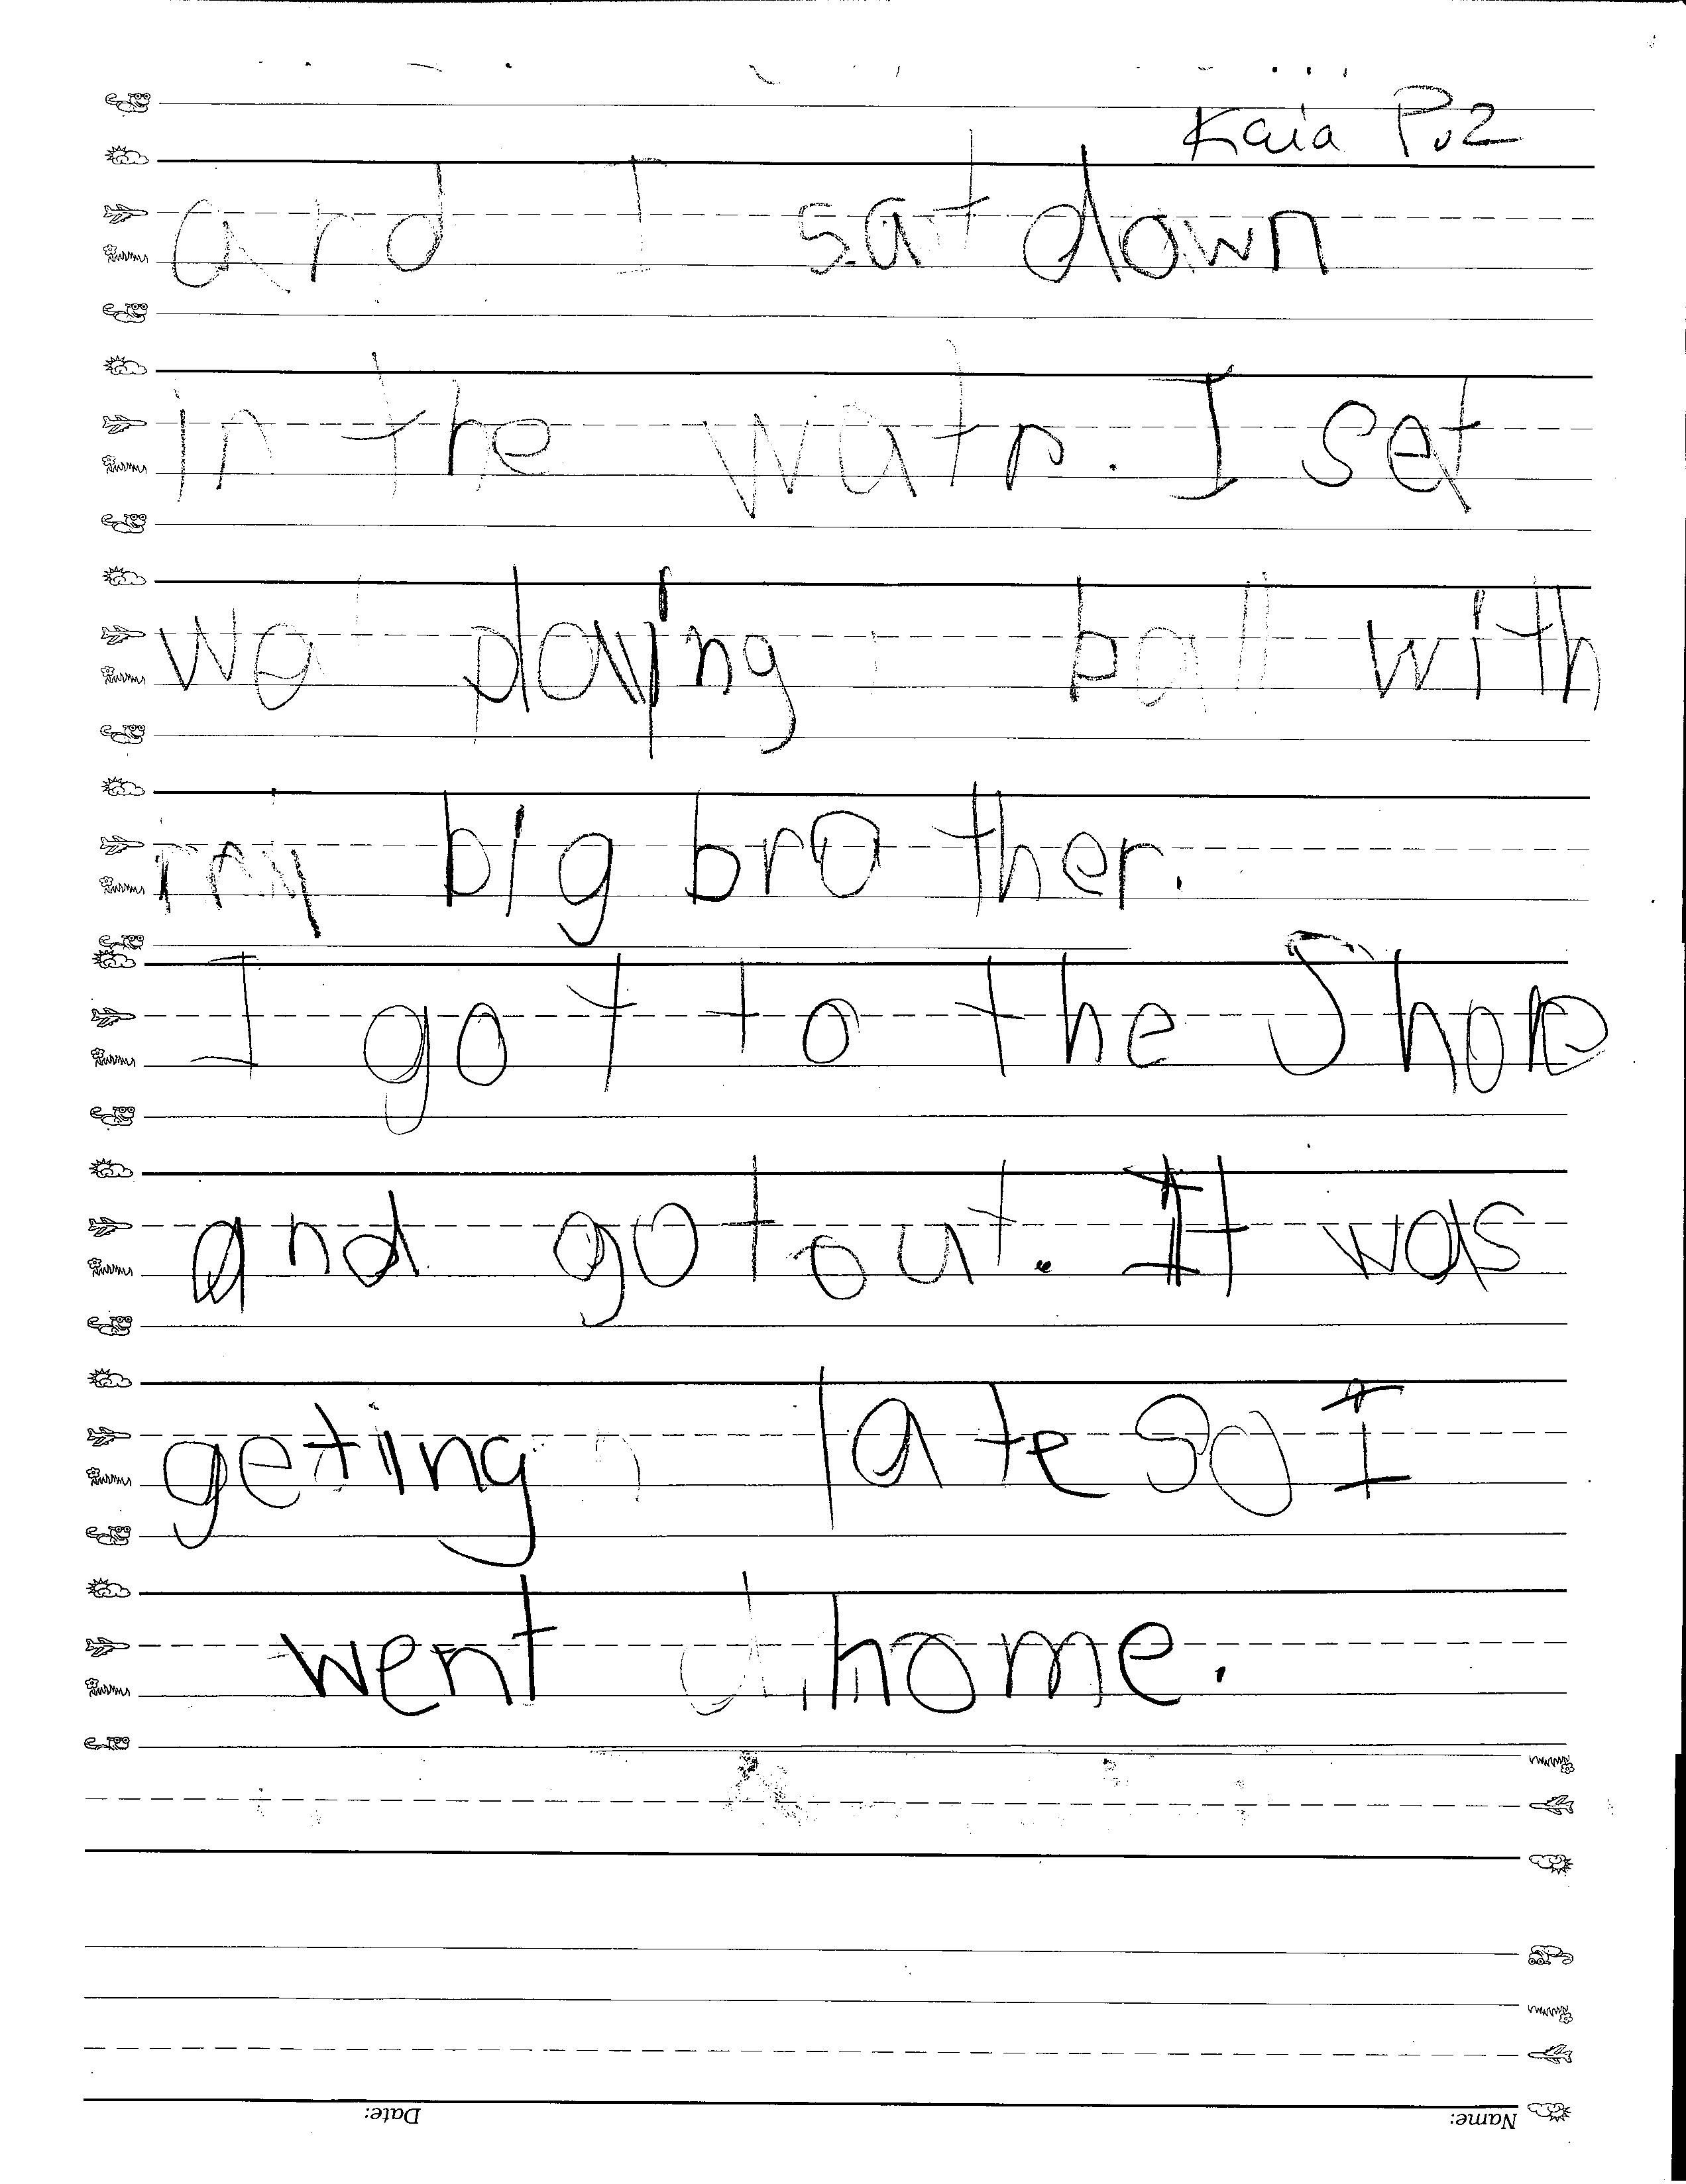 Kaia P.2
and I sat down
in the watr. I set
wa playing ball with
my big brother.
I got to the Shore
and got out. It was
getiing late so I
went home.
Date:
Name: